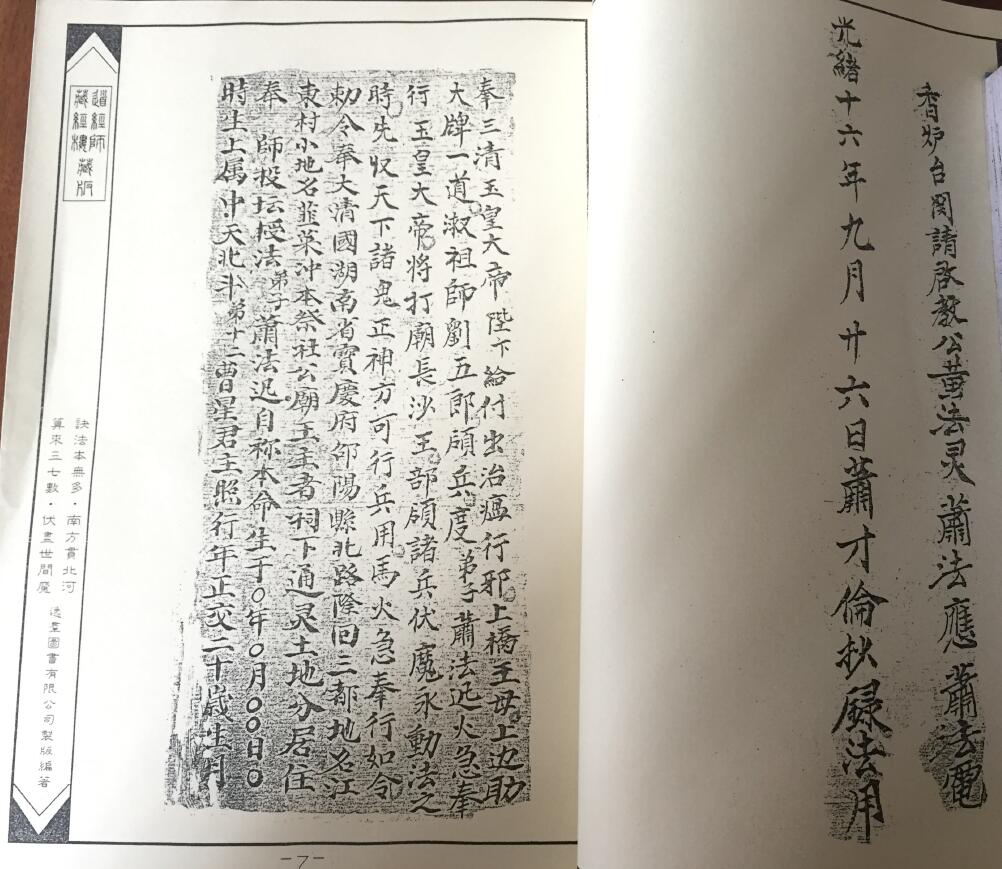 香炉台関請啓教公黄法灵 蕭法應 蕭法電
光緒十六年九月廿六日蕭才倫抄録法用
奉三清玉皇大帝陛下給付出治瘟行邪上橋王母上边助
大牌一道淑祖師劉五郎頒兵度弟子蕭法迅火急奉
行玉皇大帝將打廟長沙王部領諸兵伏魔永動法之
時先収天下諸鬼正神方可行兵用馬火急奉行如令
勅令奉大清國湖南省寶慶府邵陽縣北路隆回三都地名江
東村小地名韮菜冲本祭社公廟王主者祠下通灵土地分居住
奉 師投坛授法弟子蕭法迅自称本命生于〇年〇月〇〇日〇
時生上属中天北斗第十二曹星君主照行年正交二十歲生月
道經師
藏經樓藏版
訣法本無多·南方貫北河
算來三七數·伏盡世間魔
逸羣圖書有限公司製版編著
-7-